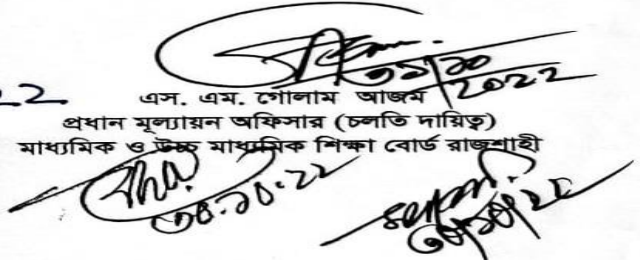 ৩১/১০
/2022
22
এস. এম. গোলাম আজম
প্রধান মূল্যায়ন অফিসার (চলতি দায়িত্ব)
মাধ্যমিক ও উচ্চ মাধ্যমিক শিক্ষা বোর্ড রাজশাহী
৩০.১০.২২
৩০/১০/২২